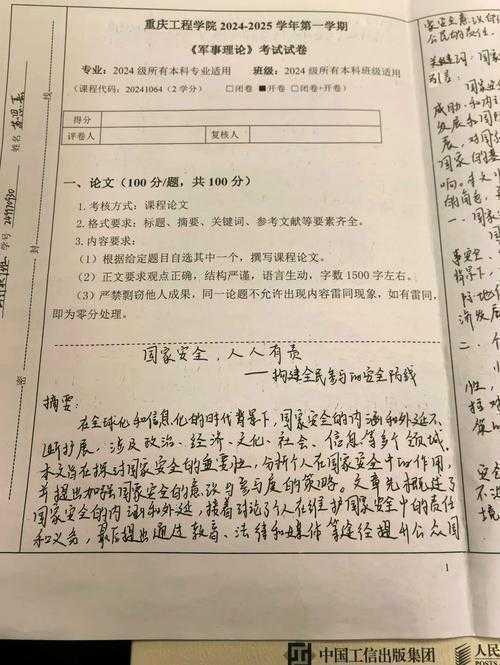 重庆工程学院 2024-2025 学年第一学期
《军事理论》考试试卷
专业：2024 级所有本科专业适用 班级：2024 级所有本科班级适用
（课程代码：20241064（2 学分） □闭卷 ■开卷 □闭卷+开卷）
得分
评卷人 复核人
一、论文（100 分/题，共 100 分）
1. 考核方式：课程论文
2. 格式要求：标题、摘要、关键词、参考文献等要素齐全。
3. 内容要求：
（1）根据给定题目自选其中一个，撰写课程论文。
（2）正文要求观点正确，结构严谨，语言生动，字数 1500 字左右。
（3）严禁剽窃他人成果，同一论题不允许出现内容雷同现象，如有雷同，
即为零分处理。
国家安全，人人有责
——构建全民参与的安全防线
摘要：
在全球化和信息化的时代背景下，国家安全的内涵和外延不
断扩展，涉及政治、经济、文化、社会、信息等多个领域。
本文旨在探讨国家安全的重要性，分析个人在国家安全中的作用，
并提出加强国家安全的意识与参与度的策略。文章先概述了
国家安全的内涵和外延，接着讨论了个人在维护国家安全中的责任
和义务，最后提出通过教育、法律和媒体等途径提升公众国
1
姓名
学号
线
封
密
家安全意识
公民的责任。
关键词：国家
引言：
国家安
发展和国
国家的基
响。本文
的角色，
一、国家
背景下，
济发展
二、个
中国工信出版集团
人民
POSTS